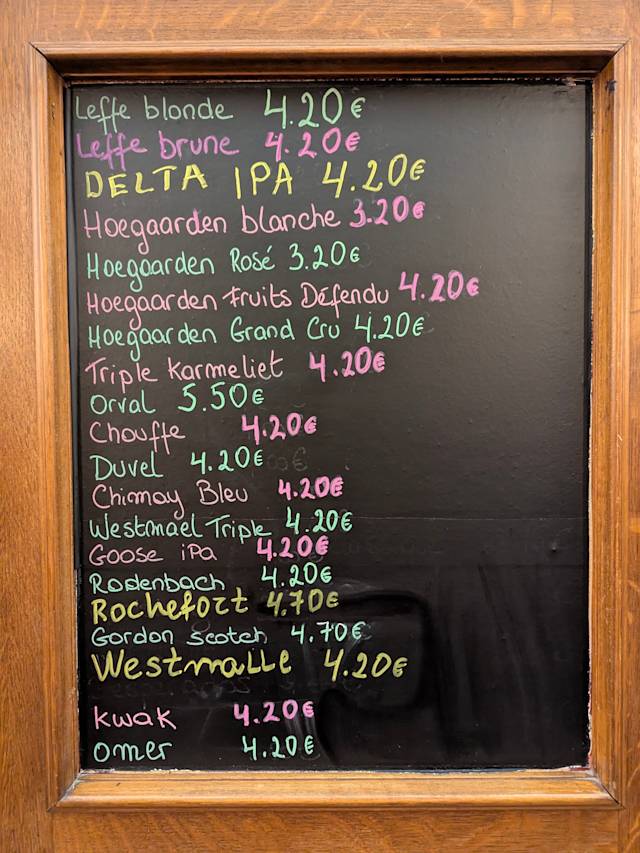 Leffe blonde 4.20€
Leffe brune 4.20€
DELTA IPA 4.20€
Hoegaarden blanche 3.20€
Hoegaarden Rosé 3.20€
Hoegaarden Fruits Défendu 4.20€
Hoegaarden Grand Cru 4.20€
Triple Karmeliet 4.20€
Orval 5.50€
Chouffe 4.20€
Duvel 4.20€
Chimay Bleu 4.20€
Westmael Triple 4.20€
Goose iPa 4.20€
Rodenbach 4.20€
Rochefort 4.70€
Gordon Scotch 4.70€
Westmalle 4.20€
Kwak 4.20€
omer 4.20€